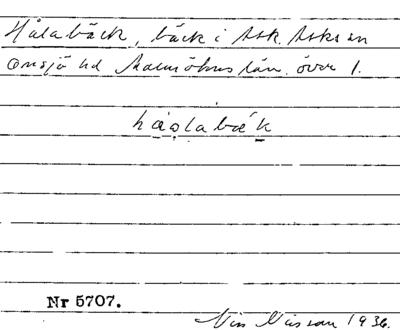 Hålabäck, bäck i Ask. Asks sn
Onsjö hd Malmöhus län. över 1.
håolabæk
Nr 5707.
Nils Nilsson 1936.